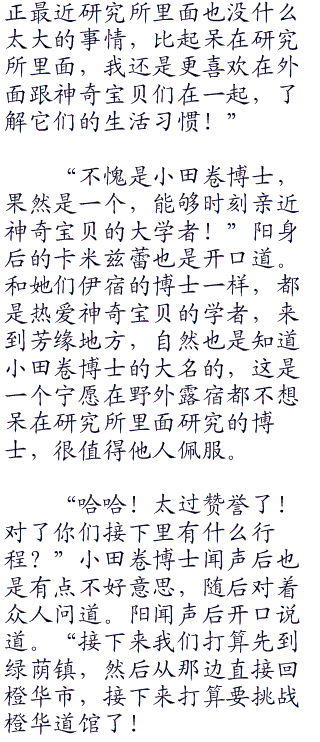 正最近研究所里面也没什么
太大的事情，比起呆在研究
所里面，我还是更喜欢在外
面跟神奇宝贝们在一起，了
解它们的生活习惯！”
“不愧是小田卷博士，
果然是一个，能够时刻亲近
神奇宝贝的大学者！”阳身
后的卡米兹蕾也是开口道。
和她们伊宿的博士一样，都
是热爱神奇宝贝的学者，来
到芳缘地方，自然也是知道
小田卷博士的大名的，这是
一个宁愿在野外露宿都不想
呆在研究所里面研究的博
士，很值得他人佩服。
“哈哈！太过赞誉了！
对了你们接下里有什么行
程？”小田卷博士闻声后也
是有点不好意思，随后对着
众人问道。阳闻声后开口说
道。“接下来我们打算先到
绿荫镇，然后从那边直接回
橙华市，接下来打算要挑战
橙华道馆了！